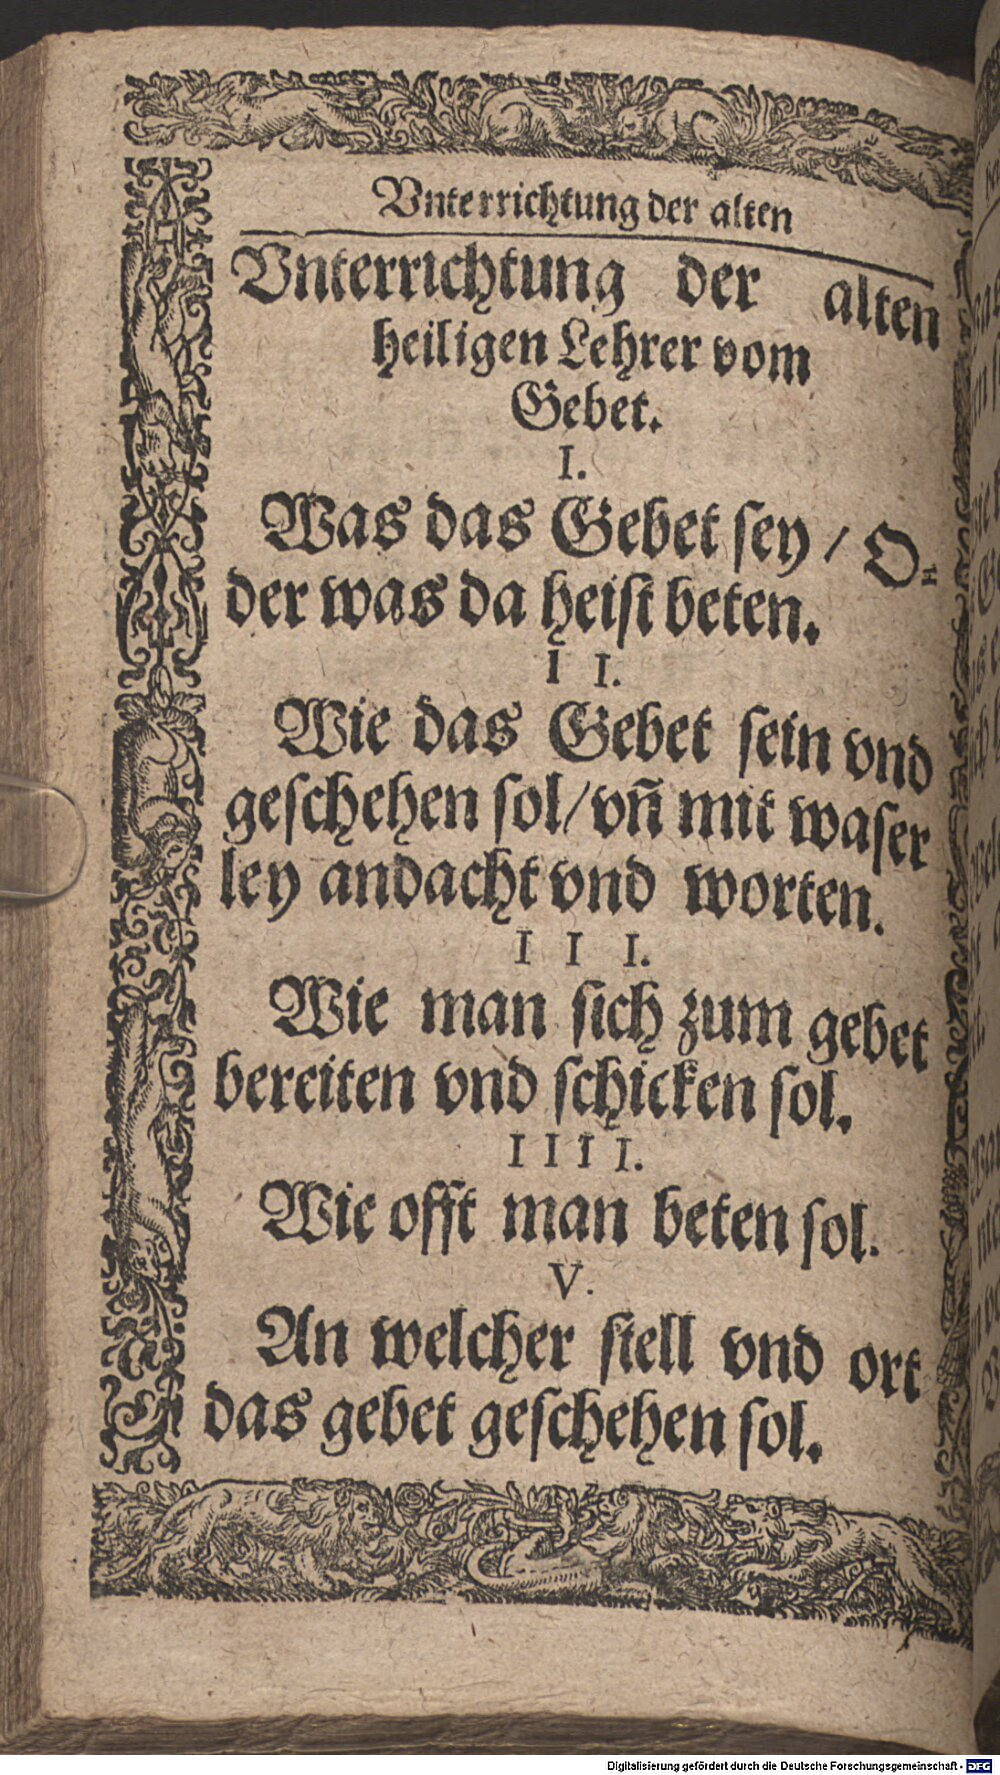 Vnterrichtung der alten
Vnterrichtung der alten
heiligen Lehrer vom
Gebet.
I.
Was das Gebet sey / O⸗
der was da heist beten.
I I.
Wie das Gebet sein vnd
geschehen sol / vñ mit waser
ley andacht vnd worten.
I I I.
Wie man sich zum gebet
bereiten vnd schicken sol.
I I I I.
Wie offt man beten sol.
V.
An welcher stell vnd ort
das gebet geschehen sol.
Digitalisierung gefördert durch die Deutsche Forschungsgemeinschaft - DFG